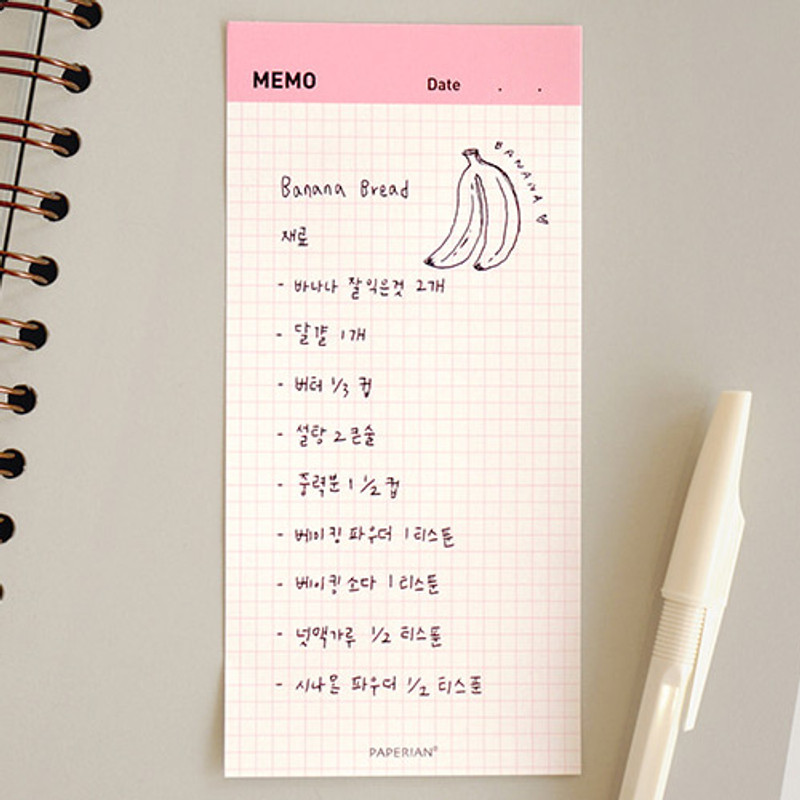 MEMO Date . .
BANANA
Banana Bread
재료
- 바나나 잘익은것 2개
- 달걀 1개
- 버터 1/3 컵
- 설탕 2큰술
- 중력분 1 1/2 컵
- 베이킹 파우더 1티스푼
- 베이킹 소다 1티스푼
- 넛맥가루 1/2 티스푼
- 시나몬 파우더 1/2 티스푼
PAPERIAN®